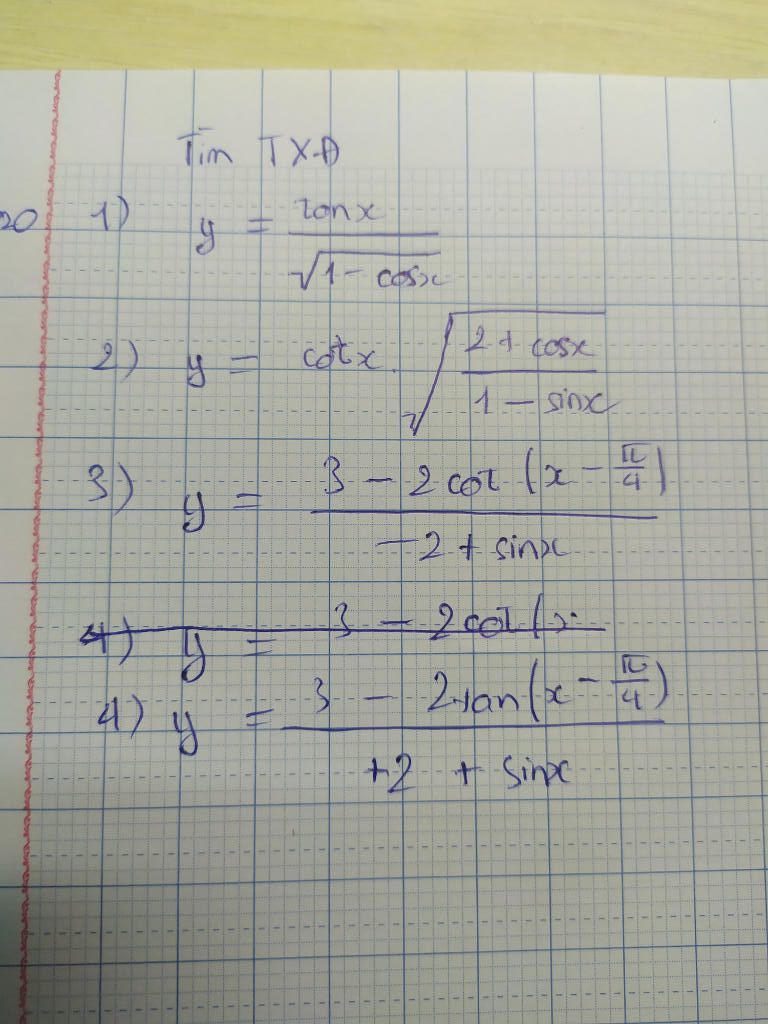 Tìm TXĐ
20 1) y = tanx / √(1 - cosx)
2) y = cotx . √((2 + cosx) / (1 - sinx))
3) y = (3 - 2cot(x - π/4)) / (-2 + sinx)
4) y = 3 - 2cot(x
4) y = (3 - 2tan(x - π/4)) / (+2 + sinx)